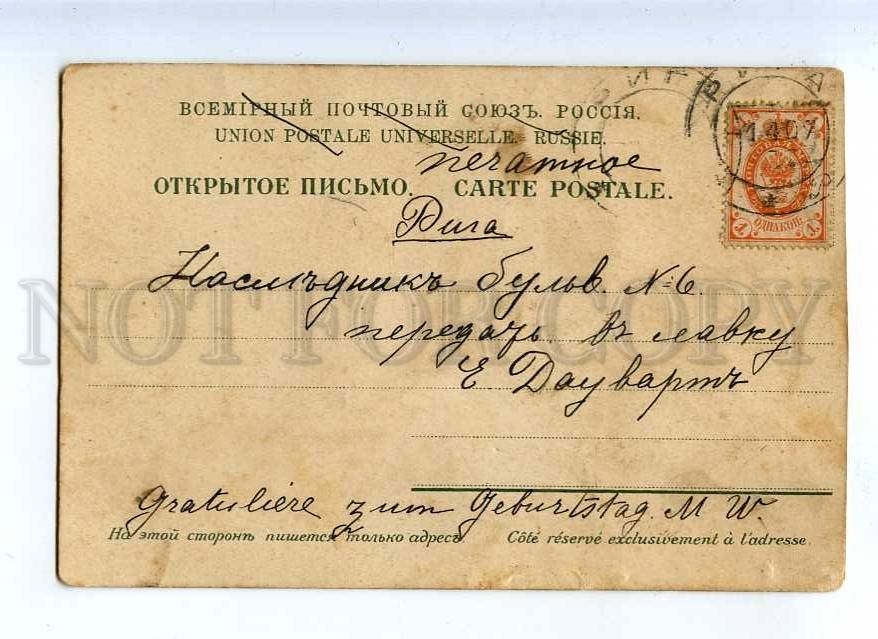 ВСЕМІРНЫЙ ПОЧТОВЫЙ СОЮЗЪ. РОССІЯ.
UNION POSTALE UNIVERSELLE. RUSSIE.
печатное
ОТКРЫТОЕ ПИСЬМО. CARTE POSTALE.
Рига
Наслѣдникъ бульв. №6
передачь въ лавку
Е Даувартъ
Gratuliere zum Geburtstag. M W.
На этой сторонѣ пишется только адресъ. Côté réservé exclusivement à l'adresse.
1 4 07
1 ОДНАКОП. 1
NOT FOR COPY